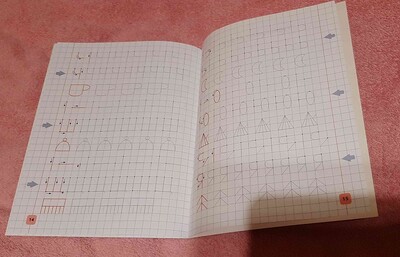 14
15